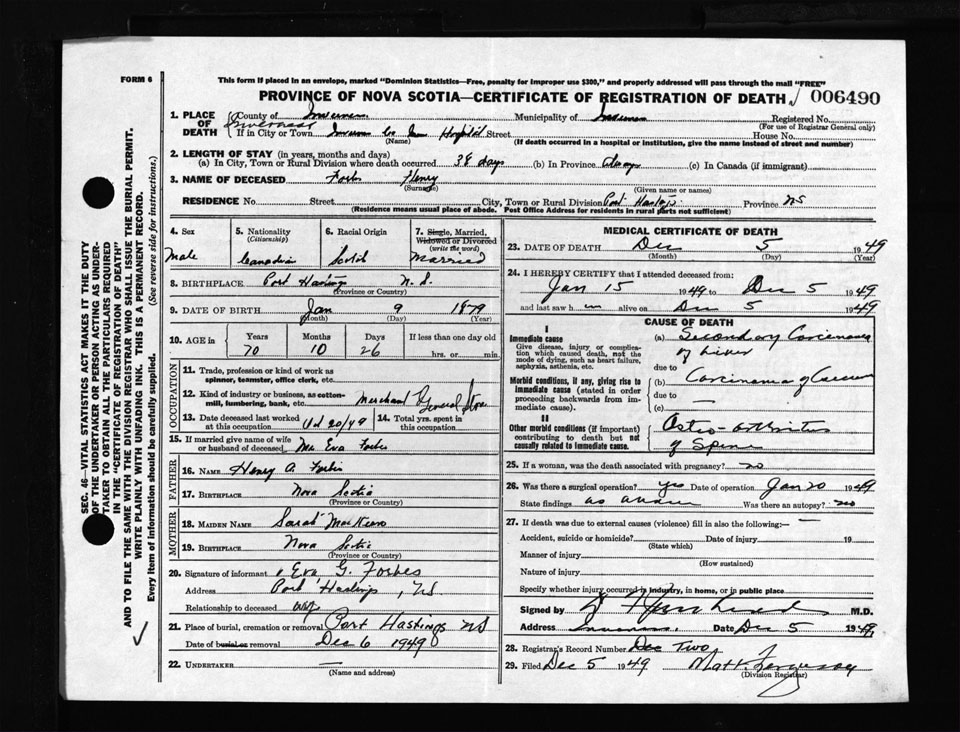 FORM 6
This form if placed in an envelope, marked "Dominion Statistics—Free, penalty for improper use $300," and properly addressed will pass through the mail "FREE"
PROVINCE OF NOVA SCOTIA—CERTIFICATE OF REGISTRATION OF DEATH 006490
1. PLACE OF DEATH
County of Inverness Municipality of Inverness Registered No.
(For use of Registrar General only)
Inverness
If in City or Town Hospital Street House No.
(Name) (If death occurred in a hospital or institution, give the name instead of street and number)
2. LENGTH OF STAY (in years, months and days)
(a) In City, Town or Rural Division where death occurred 38 days (b) In Province always (c) In Canada (if immigrant)
3. NAME OF DECEASED Forbes Henry
(Surname) (Given name or names)
RESIDENCE No. Street City, Town or Rural Division Port Hastings Province NS
(Residence means usual place of abode. Post Office Address for residents in rural parts not sufficient)
4. Sex
Male
5. Nationality
(Citizenship)
Canadian
6. Racial Origin
Scotch
7. Single, Married,
Widowed or Divorced
(write the word)
Married
8. BIRTHPLACE Port Hastings N.S.
(Province or Country)
9. DATE OF BIRTH Jan 9 1879
(Month) (Day) (Year)
10. AGE in Years Months Days If less than one day
70 10 26 hrs. or min.
OCCUPATION
11. Trade, profession or kind of work as
spinner, teamster, office clerk, etc.
12. Kind of industry or business, as cotton-
mill, lumbering, bank, etc. Merchant General Store
13. Date deceased last worked
at this occupation Oct 20/49
14. Total yrs. spent in
this occupation
15. If married give name of wife
or husband of deceased Mrs Eva Forbes
FATHER
16. NAME Henry A Forbes
17. BIRTHPLACE Nova Scotia
(Province or Country)
MOTHER
18. MAIDEN NAME Sarah
19. BIRTHPLACE Nova Scotia
(Province or Country)
20. Signature of informant Eva G. Forbes
Address Port Hastings, NS.
Relationship to deceased wife
21. Place of burial, cremation or removal Port Hastings NS
Date of burial or removal Dec 6 1949
22. UNDERTAKER —
(Name and address)
MEDICAL CERTIFICATE OF DEATH
23. DATE OF DEATH Dec 5 1949
(Month) (Day) (Year)
24. I HEREBY CERTIFY that I attended deceased from:
Jan 15 1949 to Dec 5 1949
and last saw h im alive on Dec 5 1949
CAUSE OF DEATH
I
Immediate cause
Give disease, injury or complication which caused death, not the mode of dying, such as heart failure, asphyxia, asthenia, etc.
(a) Secondary Carcinoma
of liver
due to
Morbid conditions, if any, giving rise to immediate cause (stated in order proceeding backwards from immediate cause).
(b) Carcinoma of Caecum
due to
(c) —
II
Other morbid conditions (if important) contributing to death but not causally related to immediate cause.
Osteo-arthritis
of Spine
25. If a woman, was the death associated with pregnancy? no
26. Was there a surgical operation? yes Date of operation Jan 20 1949
State findings as above Was there an autopsy? no
27. If death was due to external causes (violence) fill in also the following:— —
Accident, suicide or homicide? Date of injury 19
(State which)
Manner of injury
(How sustained)
Nature of injury
Specify whether injury occurred in industry, in home, or in public place
Signed by M.D.
Address Inverness. Date Dec 5 1949
28. Registrar's Record Number Dec Two
29. Filed Dec 5 1949 Matt
(Division Registrar)
SEC. 46—VITAL STATISTICS ACT MAKES IT THE DUTY
OF THE UNDERTAKER OR PERSON ACTING AS UNDER-
TAKER TO OBTAIN ALL THE PARTICULARS REQUIRED
IN THE "CERTIFICATE OF REGISTRATION OF DEATH"
AND TO FILE THE SAME WITH THE DIVISION REGISTRAR WHO SHALL ISSUE THE BURIAL PERMIT.
WRITE PLAINLY WITH UNFADING INK. THIS IS A PERMANENT RECORD.
Every item of information should be carefully supplied. (See reverse side for instructions.)